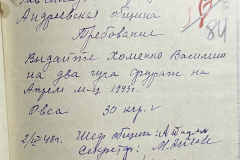 Андреевская община
Требование
Выдайте Хоменко Василию
на два гуча фуража на
Апрель м-ц 1943г.
Овса 30 кгр.
2/IV-43г. Шеф общины:
Секретарь:
84